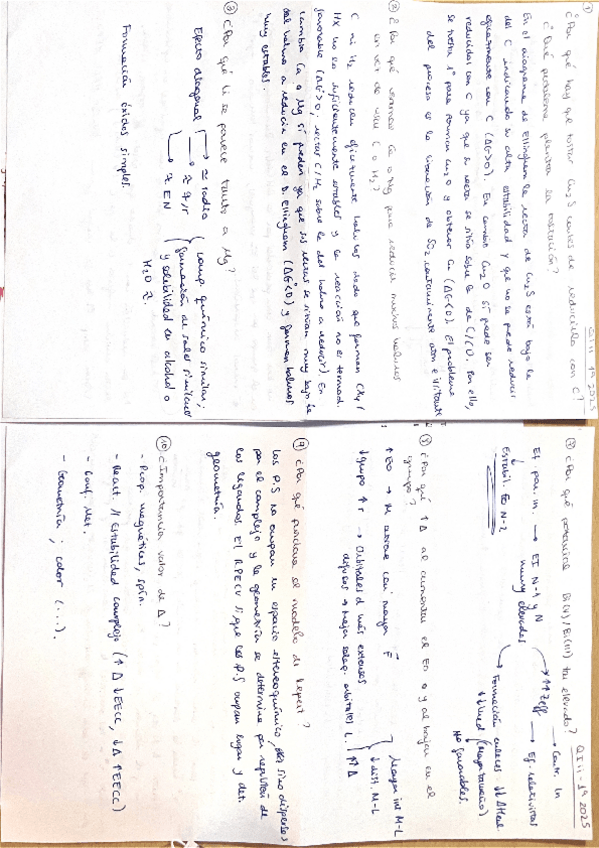 QIII 1ª 2025
① ¿Por qué hay que tostar Cu₂S antes de reducirlo con C?
¿Qué problema plantea la tostación?
En el diagrama de Ellingham la recta de Cu₂S está bajo la
del C indicando su alta estabilidad y que no se puede reducir
directamente con C (ΔG>0). En cambio Cu₂O sí puede ser
reducidas con C ya que su recta se sitúa sobre la de C/CO. Por ello,
se tuesta 1º para formar Cu₂O y obtener Cu (ΔG<0). El problema
del proceso es la liberación de SO₂, contaminante atm e irritante
② ¿Por qué usamos Ca o Mg para reducir muchos haluros
en vez de usar C o H₂?
C ni H₂ reducen eficazmente haluros dado que forman CX₄ /
HX no lo suficientemente estables y la reacción no es termod.
favorable (ΔG>0, rectas C/H₂ sobre la del haluro a reducir). En
cambio Ca o Mg sí pueden ya que sus rectas se sitúan muy bajo la
del haluro a reducir en el D. Ellingham (ΔG<0) y forman haluros
muy estables.
③ ¿Por qué Li se parece tanto a Mg?
Efecto diagonal → ≈ radio
→ ≈ q/r
→ ≈ EN
comp. químico similar;
formación de sales similares
y solubilidad en alcohol o
H₂O ≈.
Formación óxidos simples.
QIII - 1ª 2025
④ ¿Por qué potencial Bi(V)/Bi(III) tan elevado?
Ef. par. in. → EI N-1 y N
muy elevadas
↑↑ Zeff → Contr. ln
→ Ef. relativistas
Estabil. EO N-2
→ Formación enlaces - ↓↓ ΔHenl.
↓↓ Ured (mayor tamaño)
No favorables.
⑤ ¿Por qué ↑Δ al aumentar el EO y al bajar en el
grupo?
↑EO → M atrae con mayor F
↓grupo ↑r → Orbitales d más extensos
difusos → mejor solap. orbitales L.
Mayor int M-L
↓ dist. M-L
↑↑Δ
⑨ ¿Por qué funciona el modelo de Kepert?
Los P.S no ocupan un espacio estereoquímico, sino dispersos
por el complejo y la geometría se determina por repulsión de
los ligandos. El RPECV sí que los P.S ocupan lugar y det.
geometría.
⑩ ¿Importancia valor de Δ?
- Prop. magnéticas, spin.
- React. // Estabilidad complejo (↑Δ ↓EECC, ↓Δ ↑EECC)
- Conf. elet.
- Geometría; color (...).